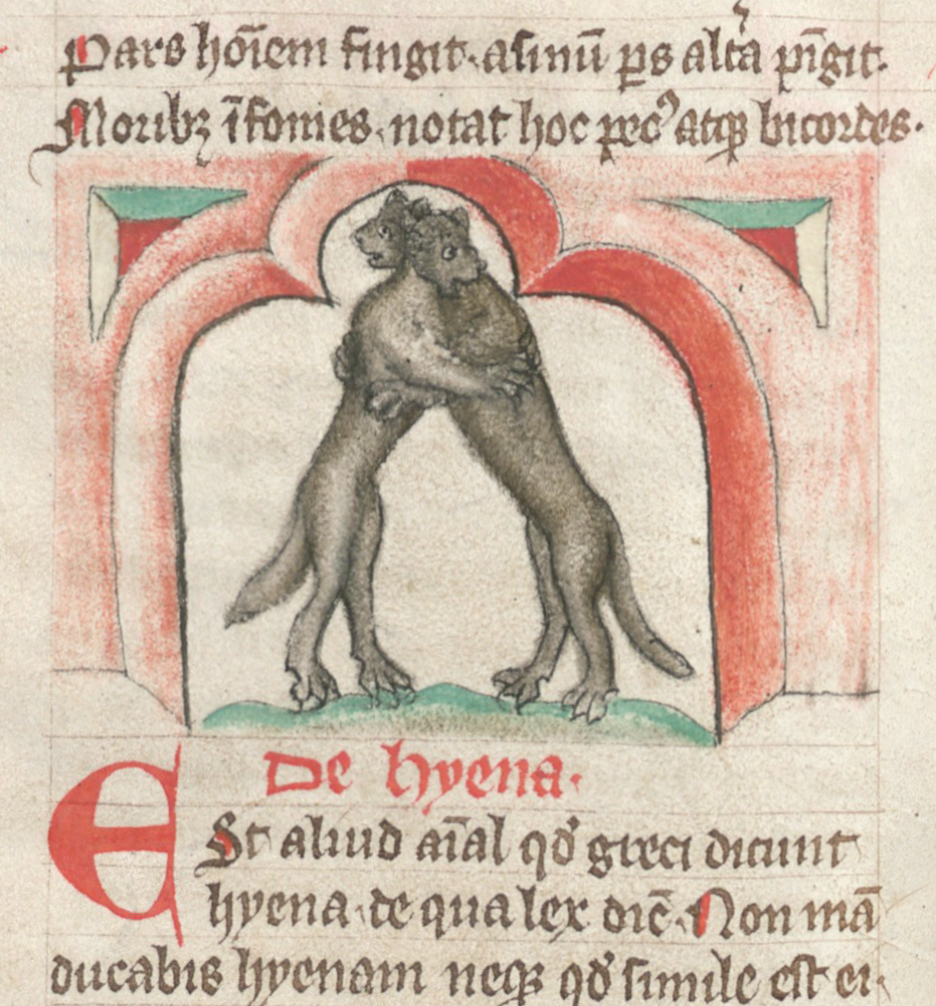 Pars hoīem fingit. asinū ꝑs altͣa pīgit.
Moribꝫ īfomes. notat hoc pec᷒ atqꝫ bicordes.
De hyena.
Est aliud aīal qđ greci dicunt
hyena. de qua lex dic̄. Non mā
ducabis hyenam neqꝫ qđ simile est ei.